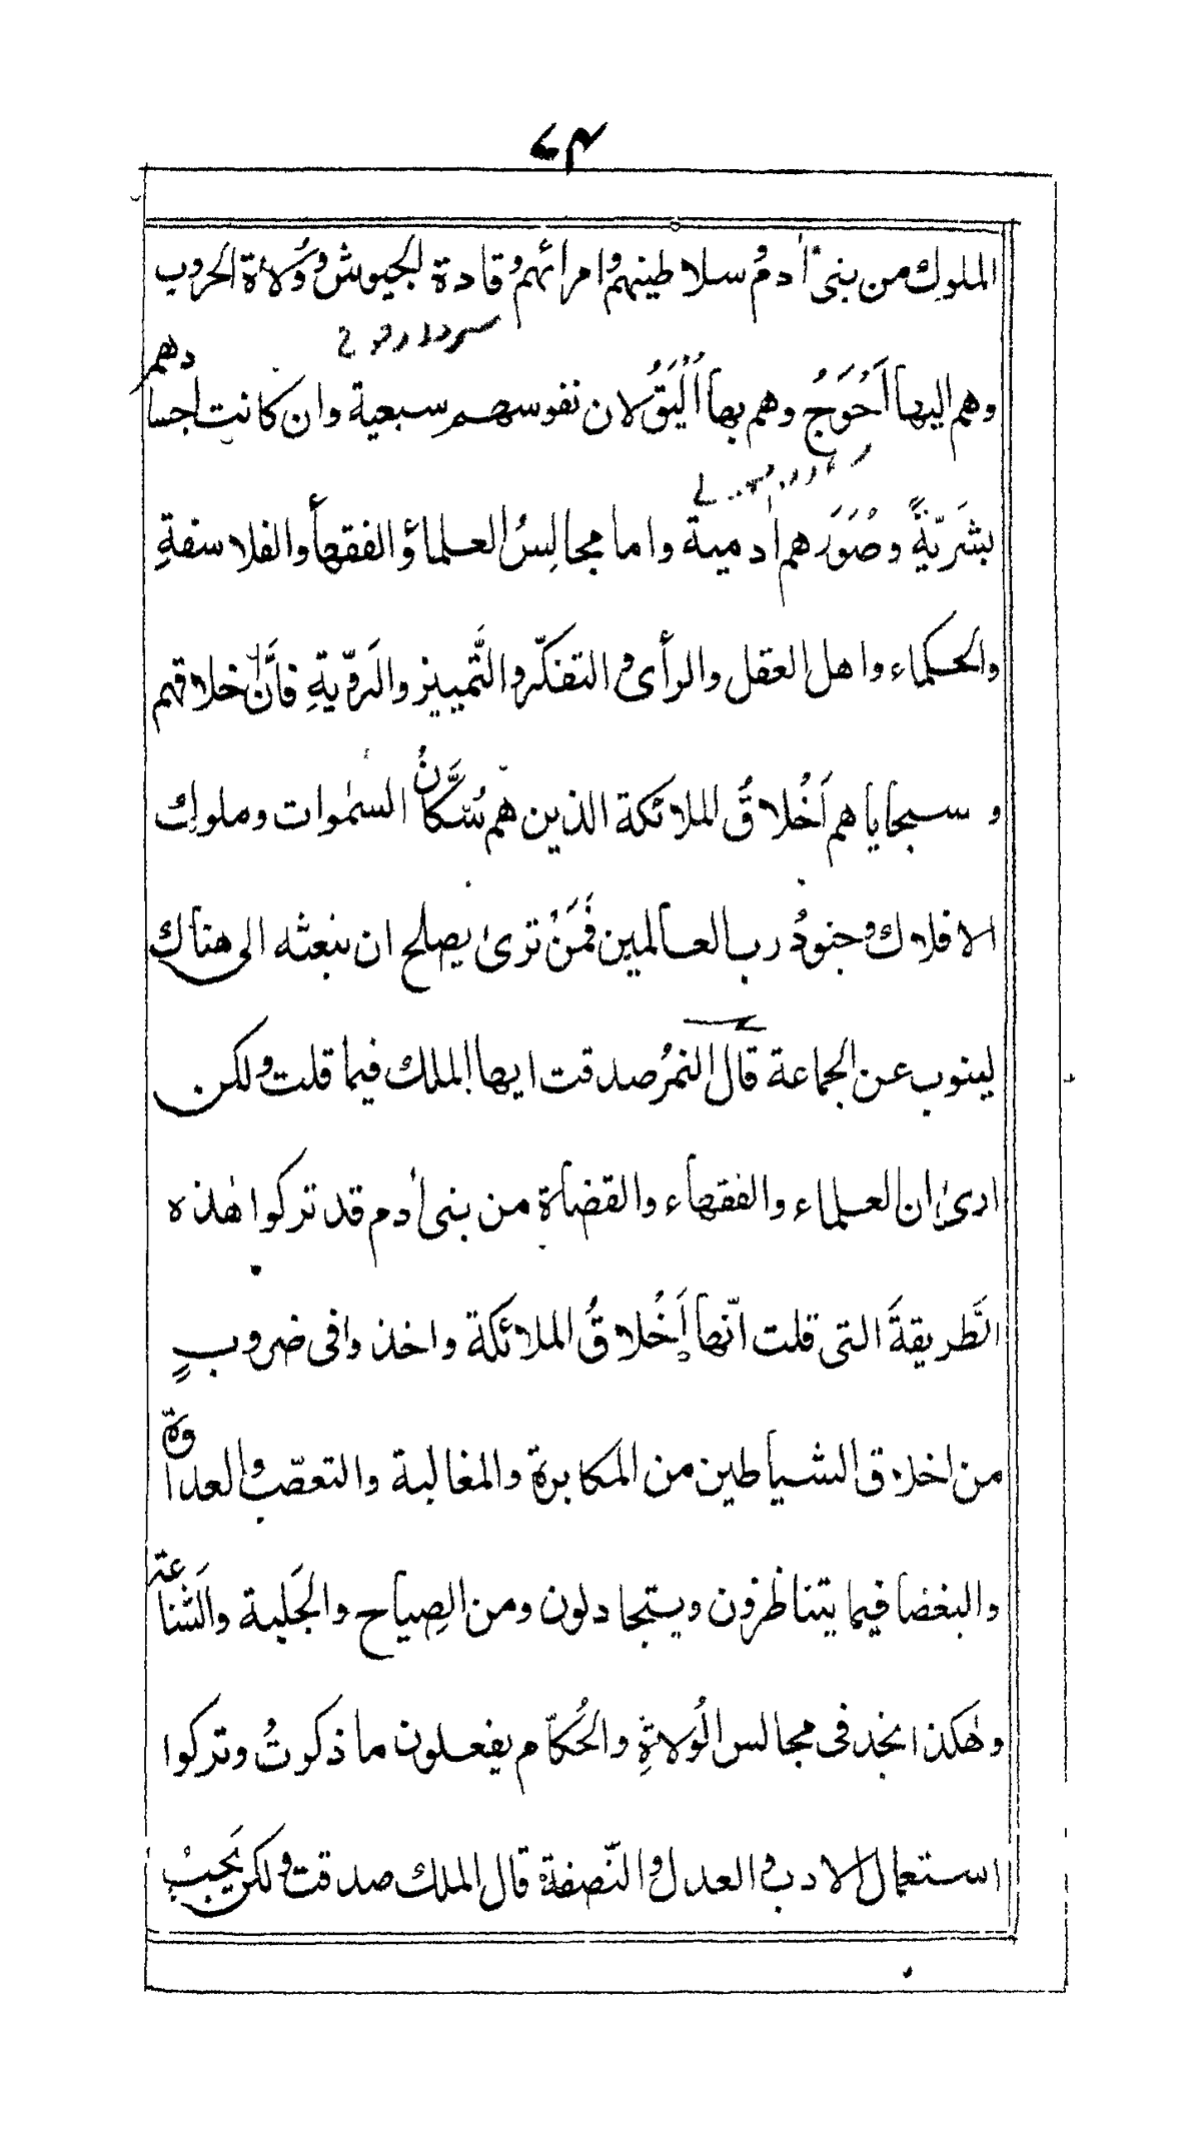 الملوك من بنىٓ اٰدم و سلاطينهم و امرائهم و قادة الجيوش و وُلاة الحروب
وهم اليها اَحْوَجُ وهم بها اَلْيَقُ لان نفوسهم سبعية وان كانت اجسادهم
بشَرِيّةً وصُوَرَهم اٰدمية واما مجالِسُ العلماؤ الفقهأ والفلاسفةِ
والحكماء واهل العقل والرأى و التفكّر و التَّمييز والرَوِّيةِ فاَنَّ اخلاقهم
و سجاياهم اَخْلاقُ الملائكة الذين هم سُكَّانُ السمٰوات وملوك
الافلاك و جنودُ رب العالمين فَمَنْ ترىٰ يصلح ان نبعثه الى هناك
لينوب عن الجماعة قال النمرُ صدقت ايها الملك فيما قلت و لكن
ارىٰ ان العلماء والفقهاء والقضاة من بنى اٰدم قد تركوا هٰذه
الَطريقةَ التى قلت انّها اَخْلاقُ الملائكة واخذوا فى ضروبٍ
من اخلاق الشياطين من المكابرة والمغالبة والتعصّب و العداوة
والبغضا فيما يتناظرون ويتجادلون ومن الصِياح والجَلبة والَشَناعة
وهٰكذا نجد فى مجالس الُولاةِ والحُكّام يفعلون ما ذكرتُ وتركوا
استعمال الادب و العدل و النّصفة قال الملك صدقت و لكن يَجِبْ